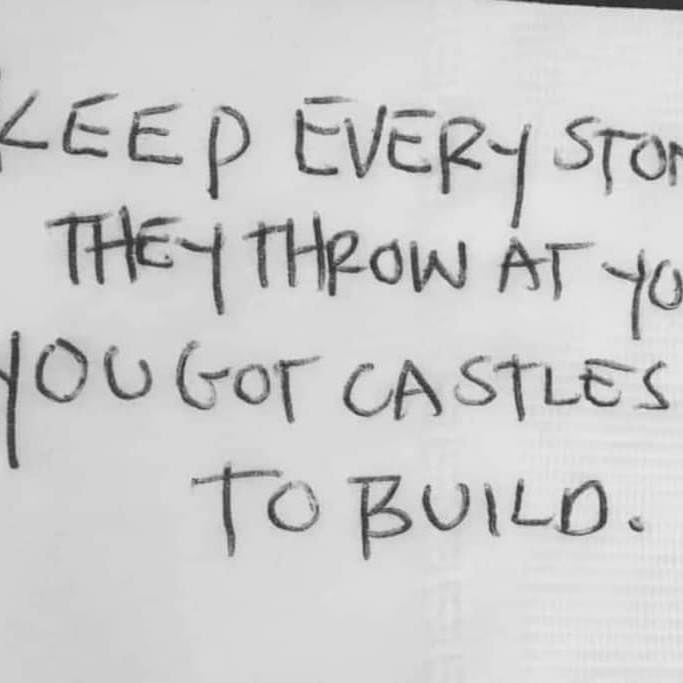 KEEP EVERY STON
THEY THROW AT YO
YOU GOT CASTLES
TO BUILD.